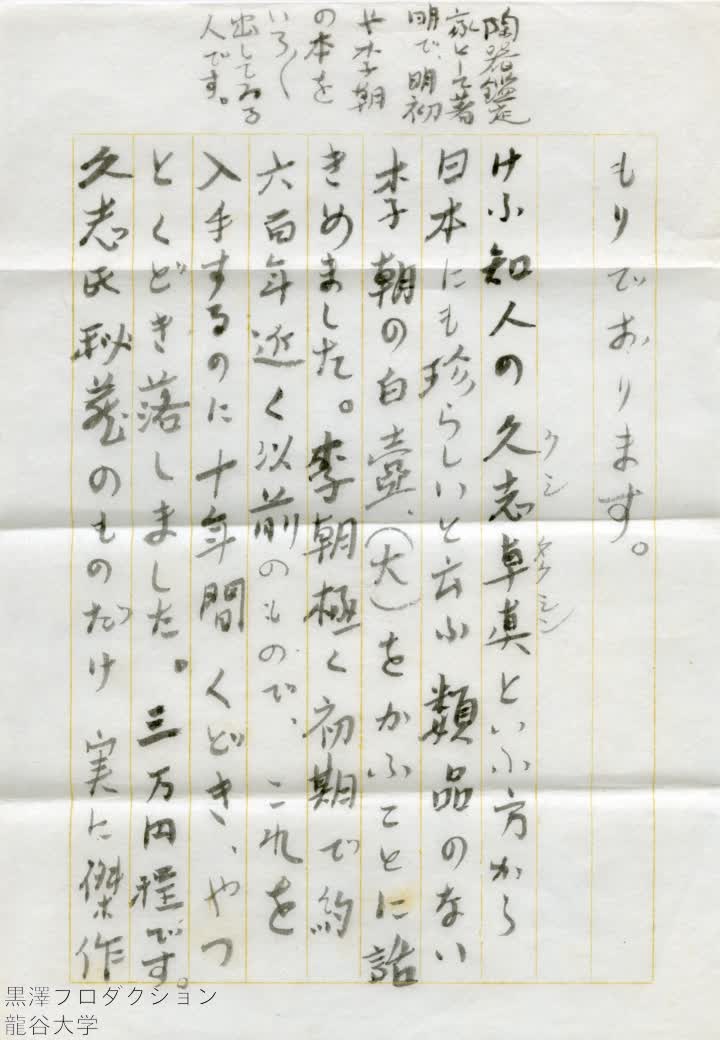 もりでおります。
けふ知人の久志卓真といふ方から
クシ タクシン
日本にも珍らしいと云ふ類品のない
李朝の白壺、(大)をかふことに話
きめました。李朝極く初期で約
六百年近く以前のもので、これを
入手するのに十年間くどき、やつ
とくどき落しました。三万円程です。
久志氏秘蔵のものだけ実に傑作
陶器鑑定
家として著
明で、明初
や李朝
の本を
いろ〱
出してゐる
人です。
黒澤プロダクション
龍谷大学